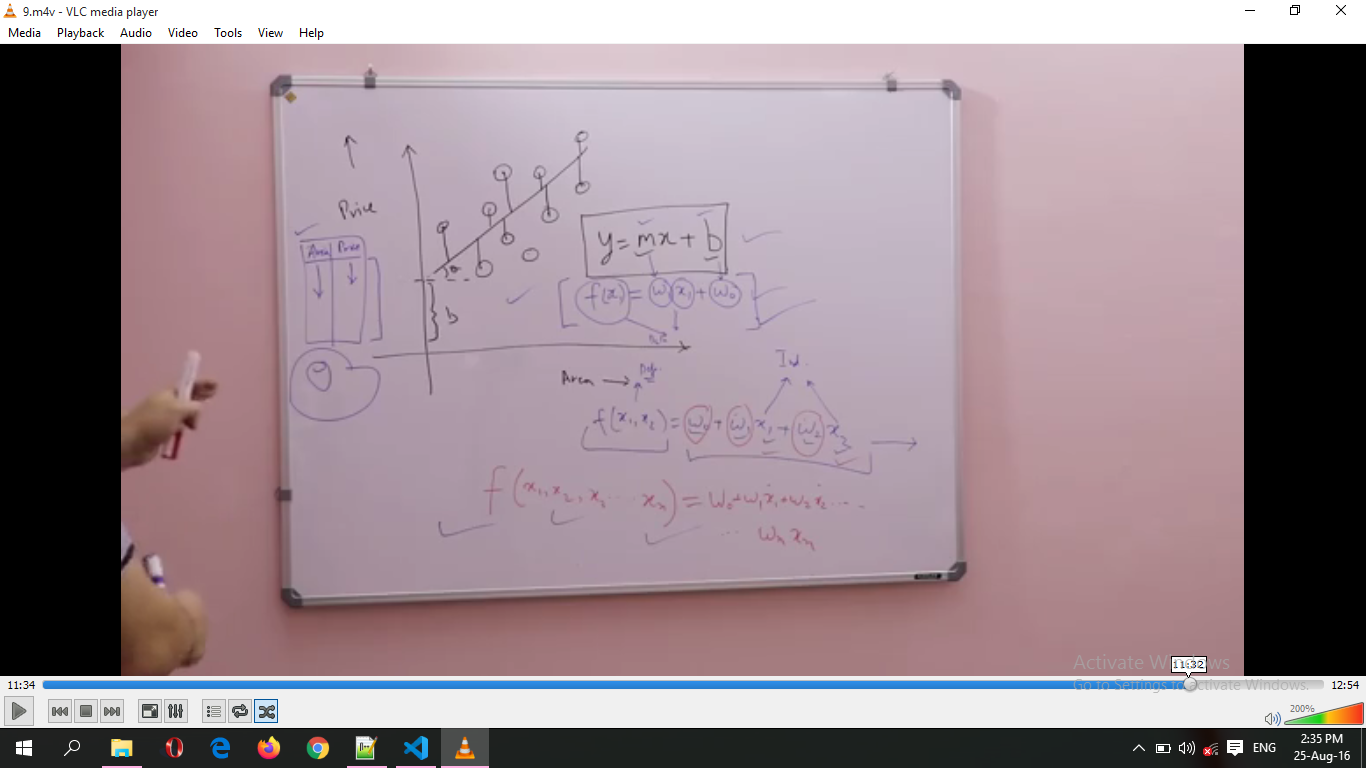 9.m4v - VLC media player
Media Playback Audio Video Tools View Help
Price
Area Price
y = mx + b
f(x) = w₁x₁ + w₀
b
Area → Dep.
Id.
f(x₁, x₂) = w₀ + w₁ x₁ + w₂ x₂
f(x₁, x₂, x₃ ... xₙ) = w₀ + w₁x₁ + w₂x₂ ....
... wₙxₙ
Activate Windows
Go to Settings to activate Windows.
11:32
11:34
12:54
200%
ENG
2:35 PM
25-Aug-16